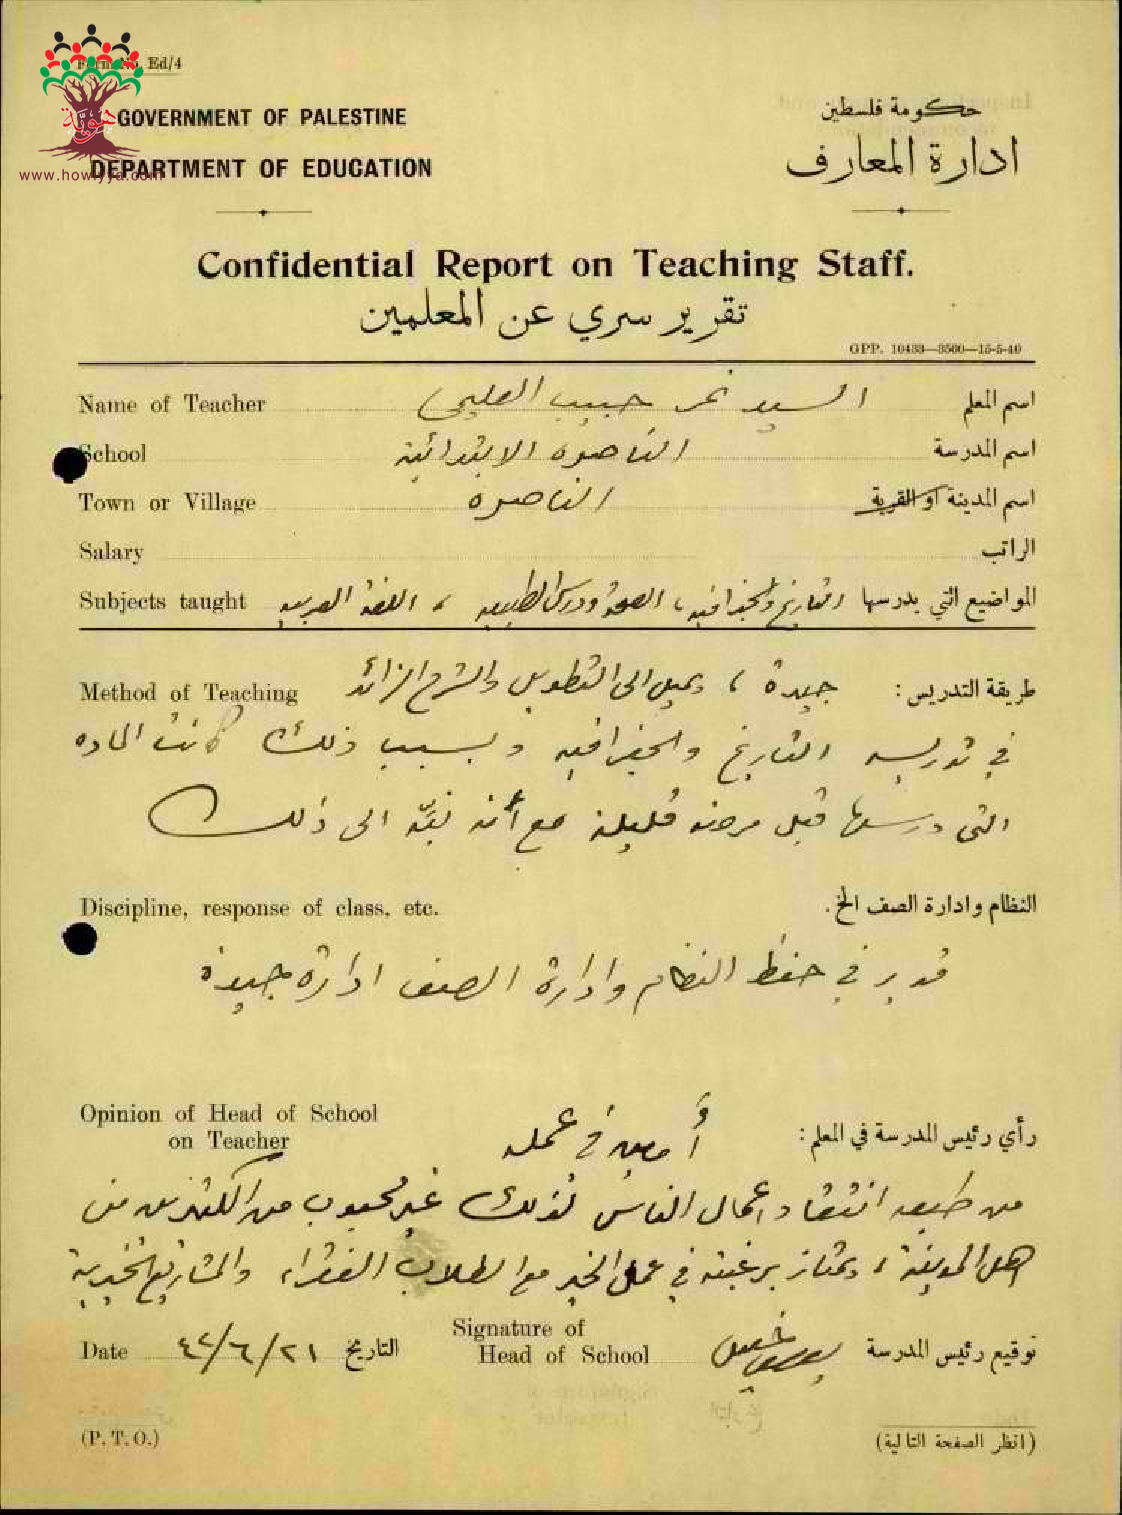 Form No. Ed/4
هوية
www.howiyya.com
GOVERNMENT OF PALESTINE
حكومة فلسطين
DEPARTMENT OF EDUCATION
ادارة المعارف
Confidential Report on Teaching Staff.
تقرير سري عن المعلمين
GPP. 10433—3500—15-5-40
Name of Teacher السيد نمر حبيب العليمي اسم المعلم
School الناصرة الابتدائية اسم المدرسة
Town or Village الناصرة اسم المدينة او القرية
Salary الراتب
Subjects taught المواضيع التي يدرسها التاريخ والجغرافيه، الصحة ودرس الطبيعه، اللغة العربيه
Method of Teaching طريقة التدريس: جيدة، ويميل الى التطويل والشرح الزائد
في تدريسه التاريخ والجغرافيه وبسبب ذلك كانت الماده
التي درسها قبل مرضه قليلة مع أنه نبّه الى ذلك
Discipline, response of class, etc. النظام وادارة الصف الخ.
قدير في حفظ النظام وادارة الصف ادارة جيدة
Opinion of Head of School
on Teacher رأي رئيس المدرسة في المعلم: أمين في عمله
من طبعه انتقاد اعمال الناس لذلك غير محبوب من الكثيرين من
اهل المدينة، ويمتاز برغبته في عمل الخير مع الطلاب الفقراء والمشاريع الخيرية
Signature of
Date ٤٢/٦/٢١ التاريخ Head of School توقيع رئيس المدرسة
(P. T. O.) (انظر الصفحة التالية)